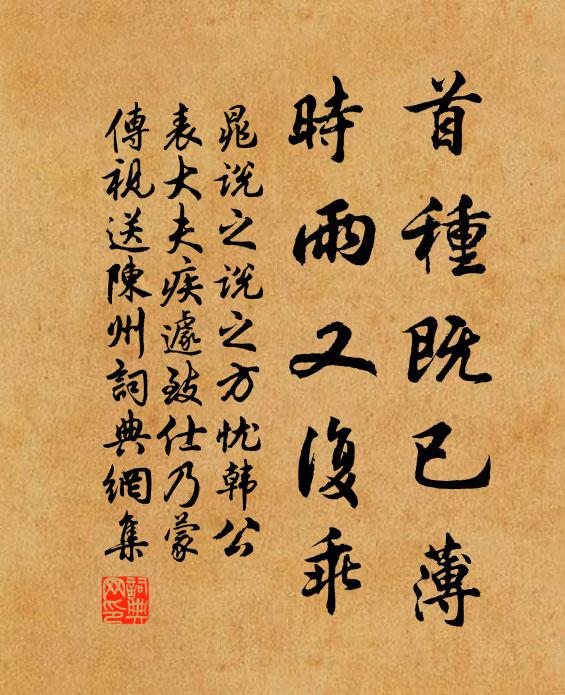 首種既已薄
時雨又復乖
晁说之说之方忧韩公
表大夫疾遽致仕乃蒙
傳視送陳州詞典網集
詞典
网印